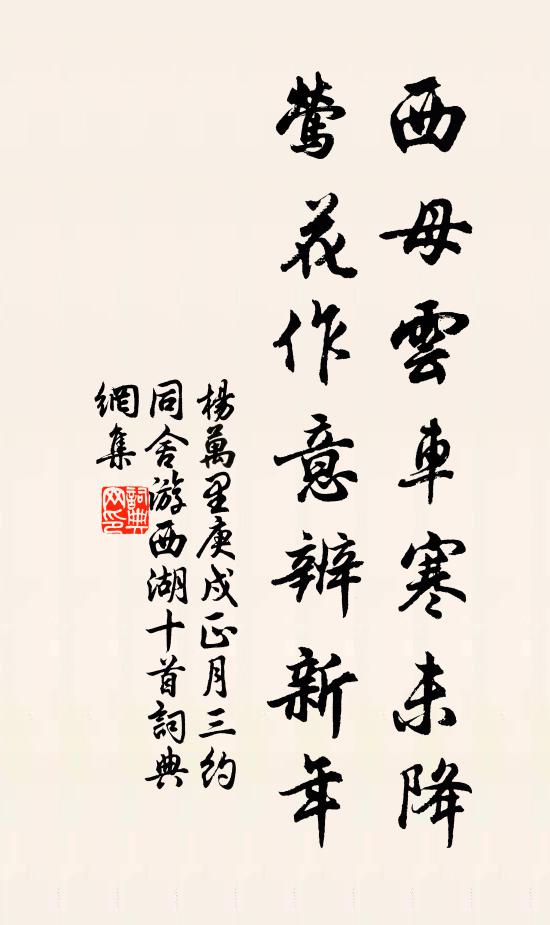 西母雲車寒未降
鶯花作意辨新年
楊萬里庚戌正月三約
同舍游西湖十首詞典
網集
詞典網印